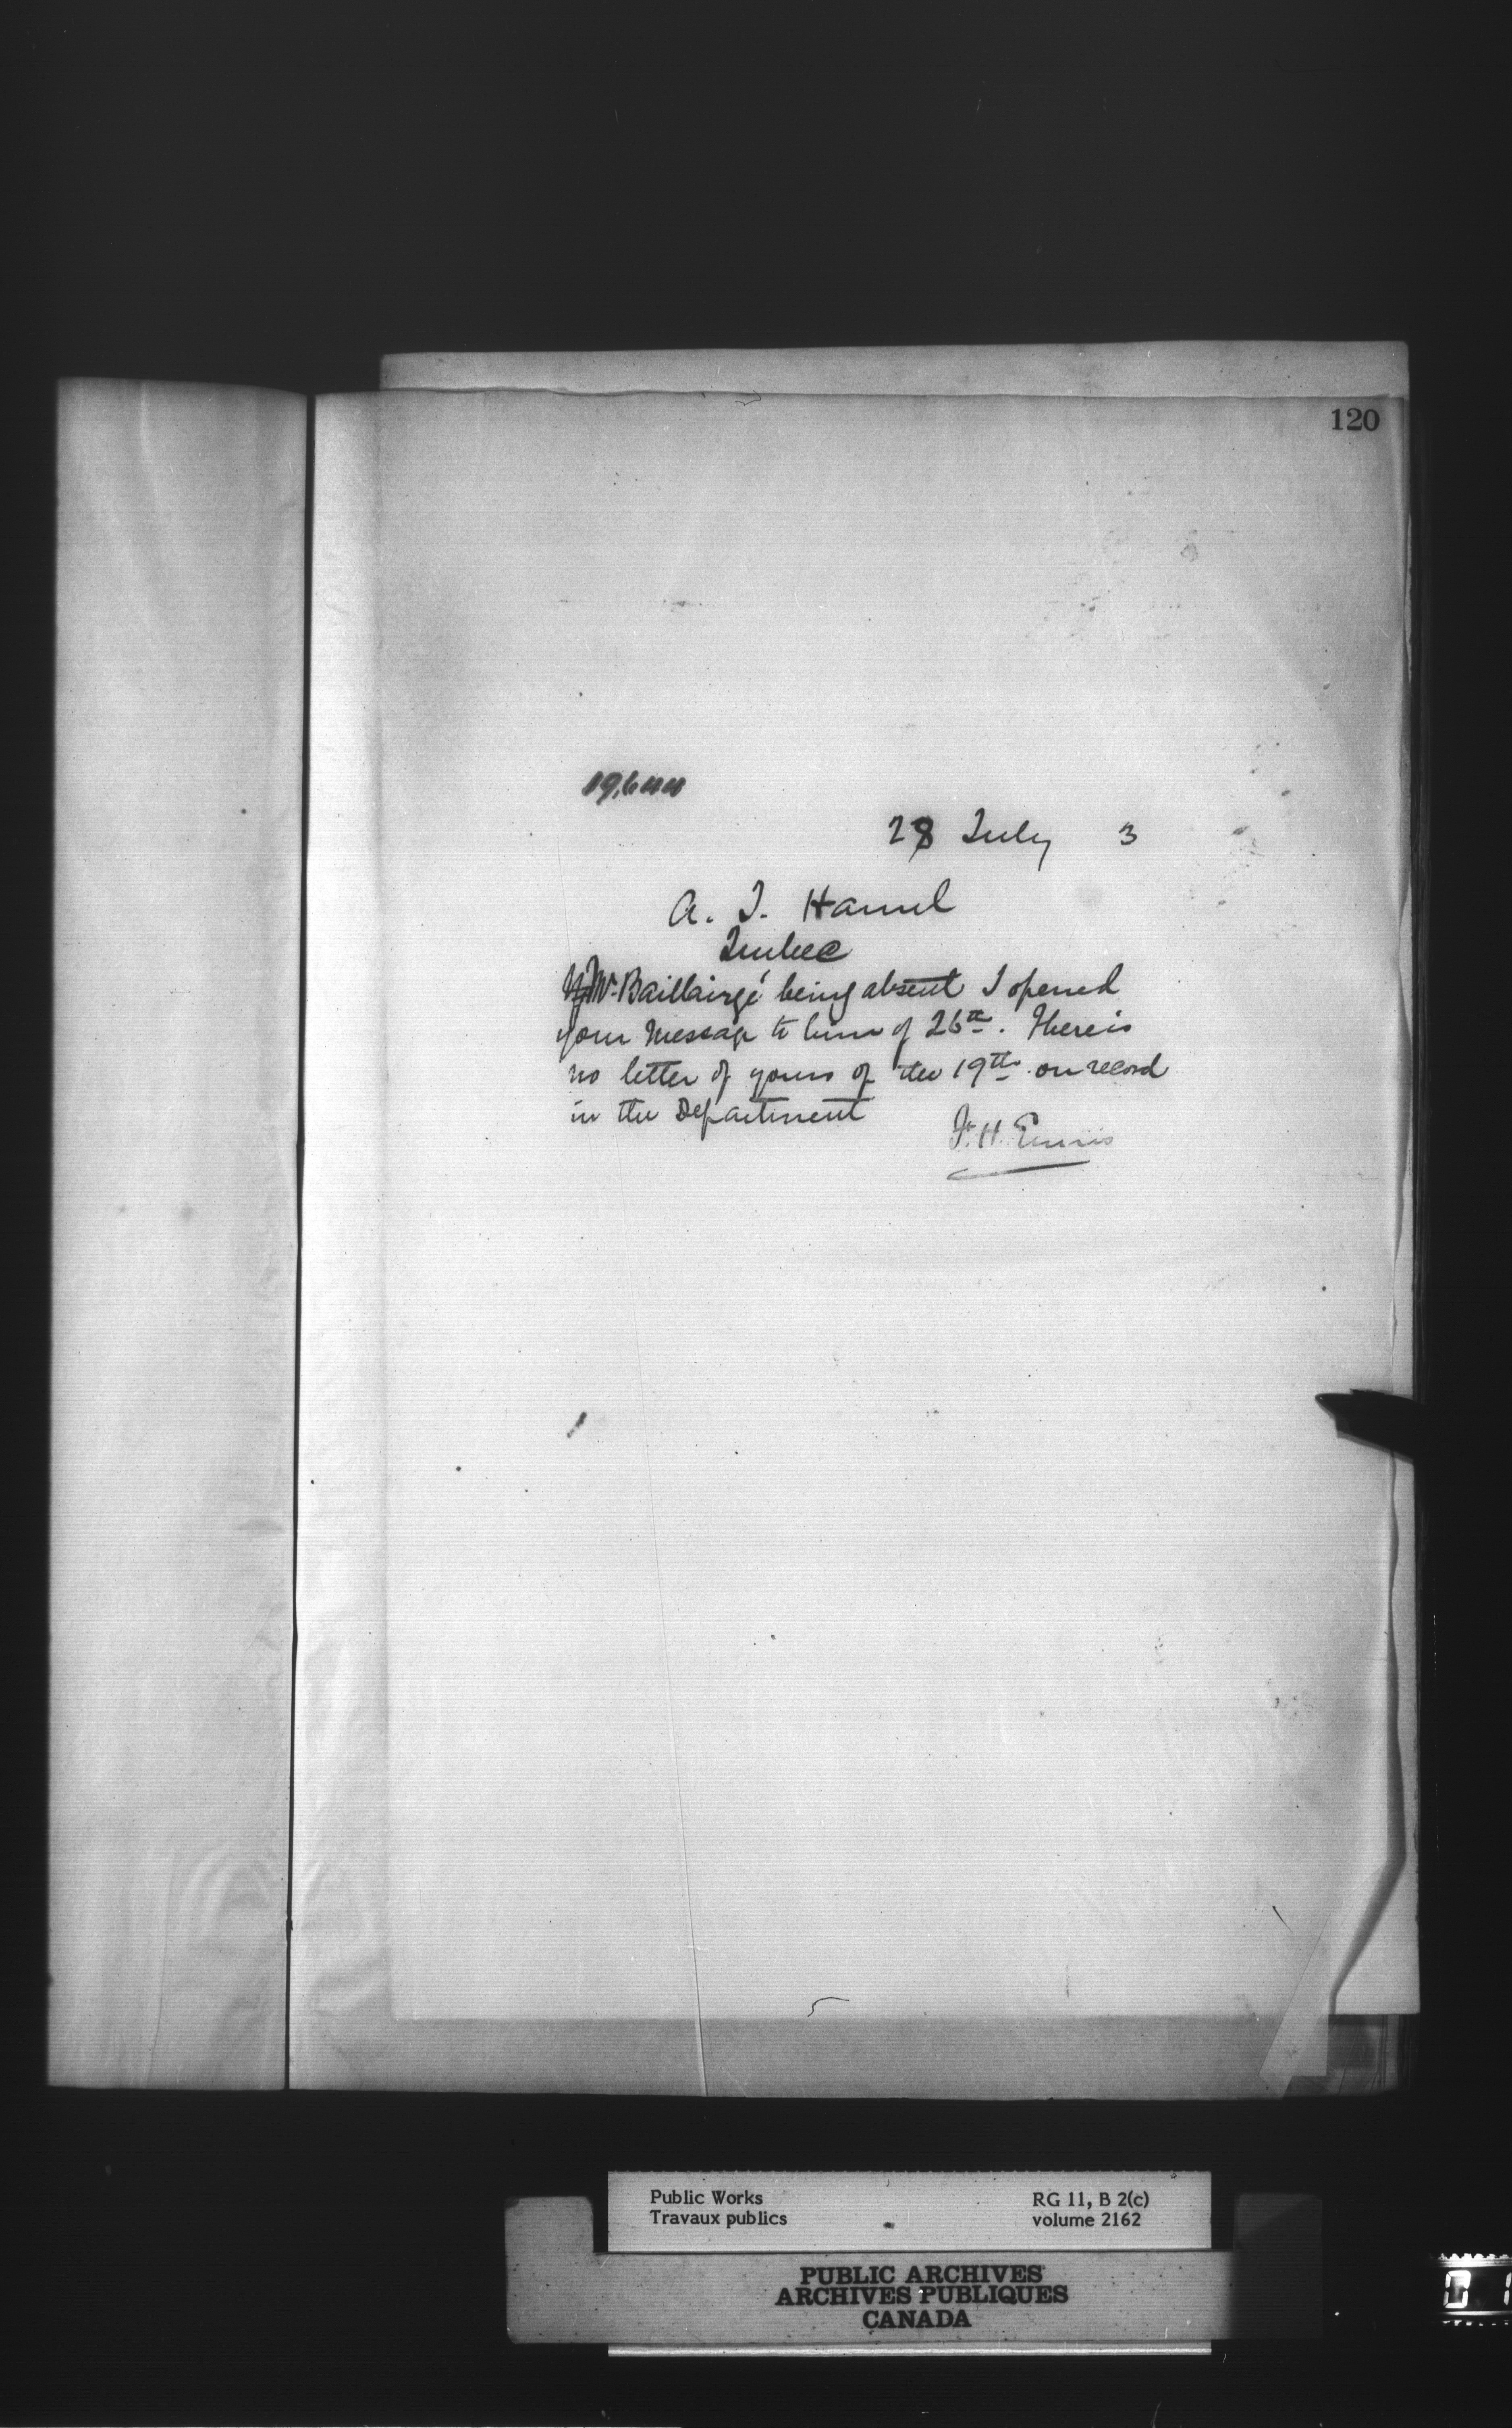 120
19,644
28 July 3
A. J. Hamel
Quebec
Mr. Baillairgé being absent I opened
your message to him of 26th. There is
no letter of yours of the 19th on record
in the Department
F. H. Ennis
Public Works
Travaux publics
RG 11, B 2(c)
volume 2162
PUBLIC ARCHIVES
ARCHIVES PUBLIQUES
CANADA